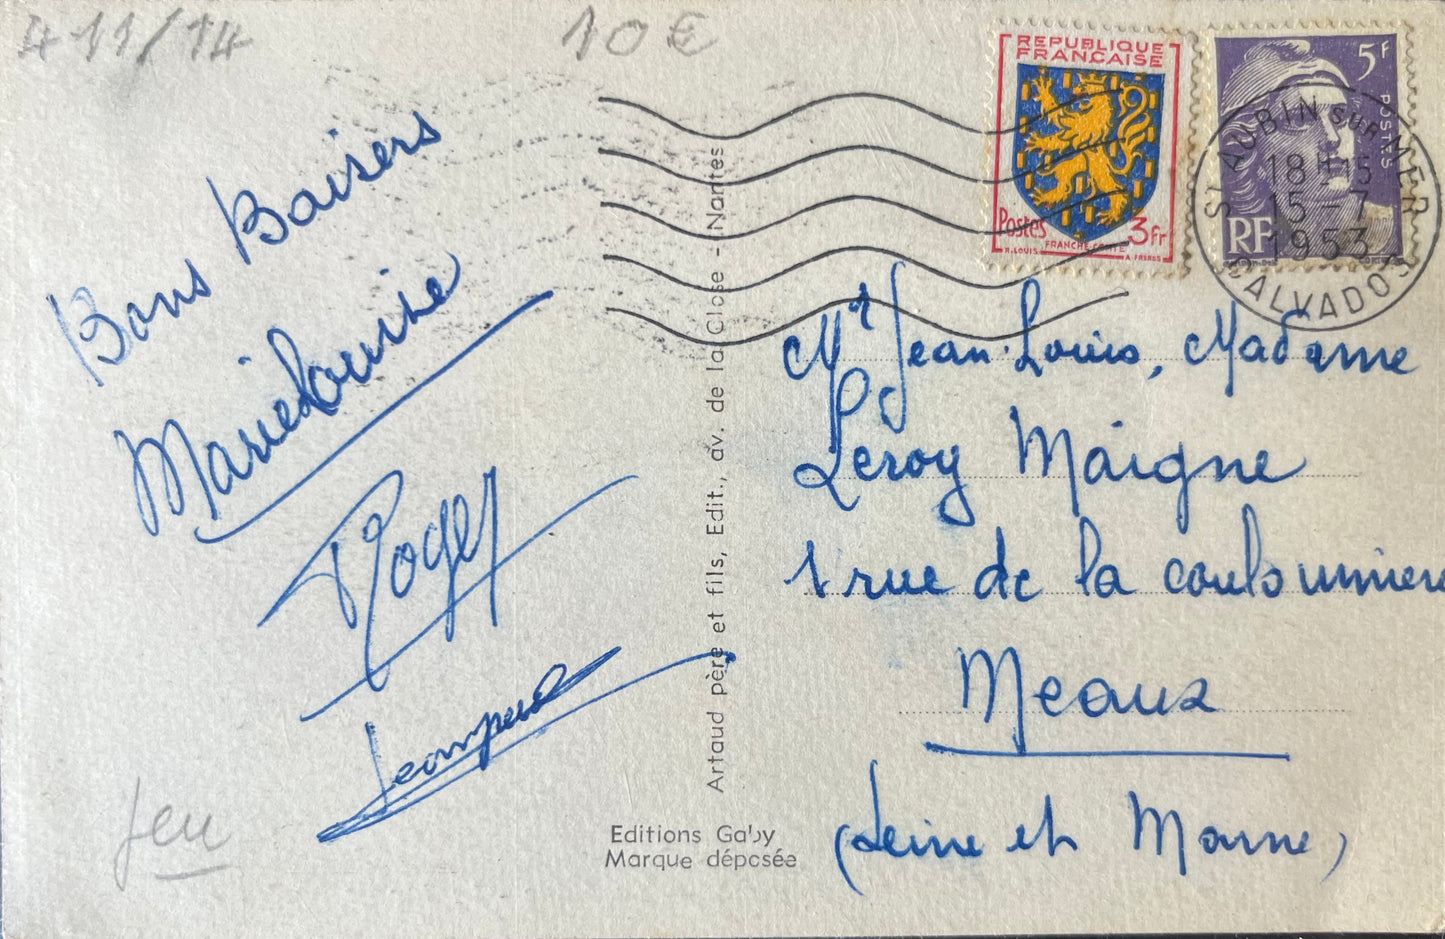 411/14
10€
Bons Baisers
Marie Louise
Roger
Jeu
Artaud père et fils, Edit., av. de la Close - Nantes
Editions Gaby
Marque déposée
REPUBLIQUE
FRANÇAISE
Postes
3fr
R. LOUIS
FRANCHE-COMTÉ
A. FRERES
5F
POSTES
RF
ST AUBIN SUR MER
18H15
15-7
1953
CALVADOS
Mr Jean-Louis, Madame
Leroy Maigne
1 rue de la coulommiere
Meaux
(Seine et Marne)